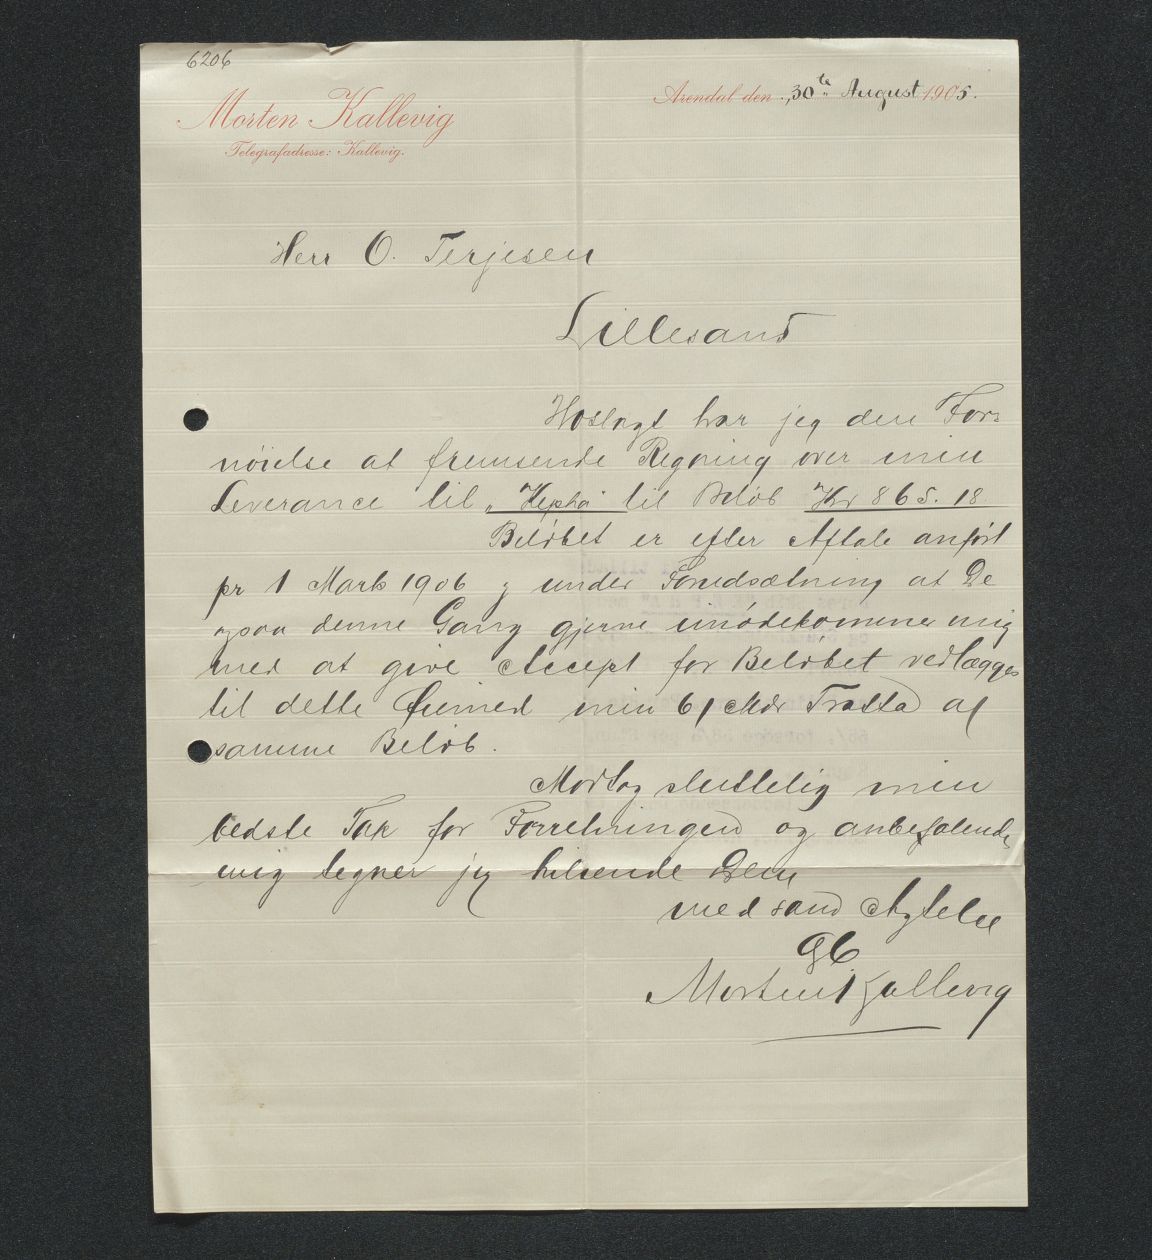 6206
Morten Kallevig
Telegrafadresse: Kallevig.
Arendal den 30te August 1905.
Herr O. Terjesen
Lillesand
Hoslagt har jeg den For-
nöielse at fremsende Regning over min
Leverance til "Kepha" til Beløb Kr 865.18
Beløbet er efter Aftale anført
pr 1 Mark 1906 & under Forudsætning at De
ogsaa denne Gang gjerne imødekommer mig
med at give Accept for Beløbet vedlægges
til dette Øiemed min 6/Mdr Tratta af
samme Beløb.
Modtag sluttelig min
bedste Tak for Forretningen og anbefalende
mig tegner jeg hilsende Dem
med sand Agtelse
Morten Kallevig